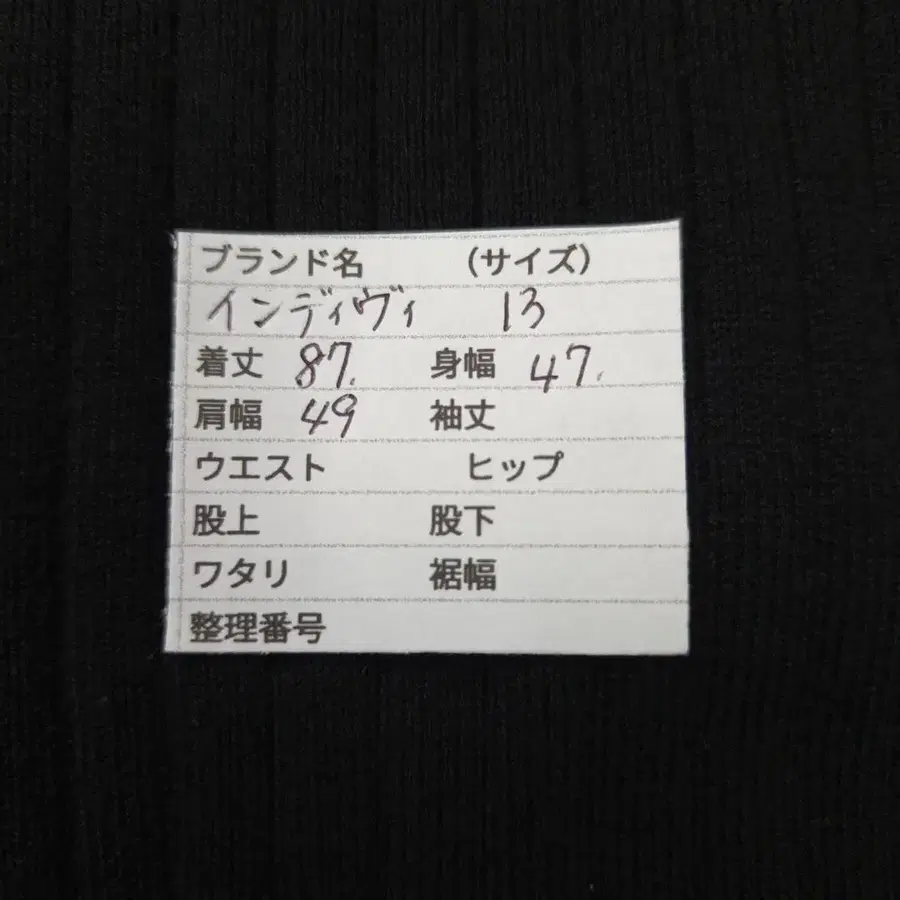 ブランド名 （サイズ）
インディヴィ 13
着丈 87. 身幅 47.
肩幅 49 袖丈
ウエスト ヒップ
股上 股下
ワタリ 裾幅
整理番号